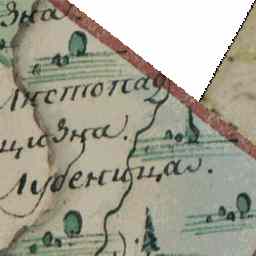 зна.
Листопад
щизна.
Лубенища.